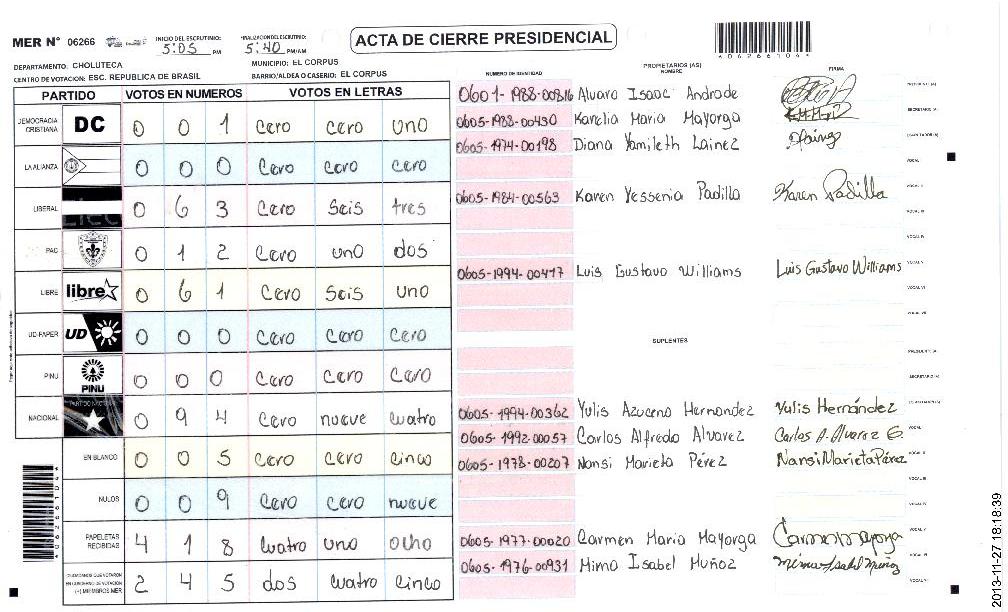 MER N° 06266 INICIO DEL ESCRUTINIO: 5:05 PM FINALIZACION DEL ESCRUTINIO: 5:40 PM/AM
ACTA DE CIERRE PRESIDENCIAL
DEPARTAMENTO: CHOLUTECA MUNICIPIO: EL CORPUS
CENTRO DE VOTACION: ESC. REPUBLICA DE BRASIL BARRIO/ALDEA O CASERIO: EL CORPUS
PARTIDO VOTOS EN NUMEROS VOTOS EN LETRAS
DEMOCRACIA CRISTIANA DC 0 0 1 Cero cero uno
LA ALIANZA 0 0 0 Cero cero cero
LIBERAL 0 6 3 Cero Seis tres
PAC 0 1 2 Cero uno dos
LIBRE libre 0 6 1 Cero Seis uno
UD-FAPER UD 0 0 0 Cero Cero Cero
PINU PINU 0 0 0 Cero Cero Cero
NACIONAL 0 9 4 Cero nueve cuatro
EN BLANCO 0 0 5 Cero Cero Cinco
NULOS 0 0 9 Cero Cero nueve
PAPELETAS RECIBIDAS 4 1 8 Cuatro uno ocho
CIUDADANOS QUE VOTARON EN CUADERNO DE VOTACION (+) MIEMBROS MER 2 4 5 dos cuatro Cinco
NUMERO DE IDENTIDAD PROPIETARIOS (AS) NOMBRE FIRMA
0601-1988-00816 Alvaro Isaac Andrade
0605-1988-00430 Karelia Maria Mayorga
0605-1974-00198 Diana Yamileth Lainez
0605-1984-00563 Karen Yessenia Padilla Karen Padilla
0605-1994-00417 Luis Gustavo Williams Luis Gustavo Williams
SUPLENTES
0605-1994-00362 Yulis Azucena Hernandez Yulis Hernández
0605-1992-00057 Carlos Alfredo Alvarez Carlos A. Alvarez E.
0605-1978-00207 Nansi Marieta Pérez Nansi Marieta Pérez
0605-1977-00020 Carmen Maria Mayorga Carmen Mayorga
0605-1976-00931 Mirna Isabel Muñoz Mirna Isabel Muñoz
2013-11-27 18:18:39